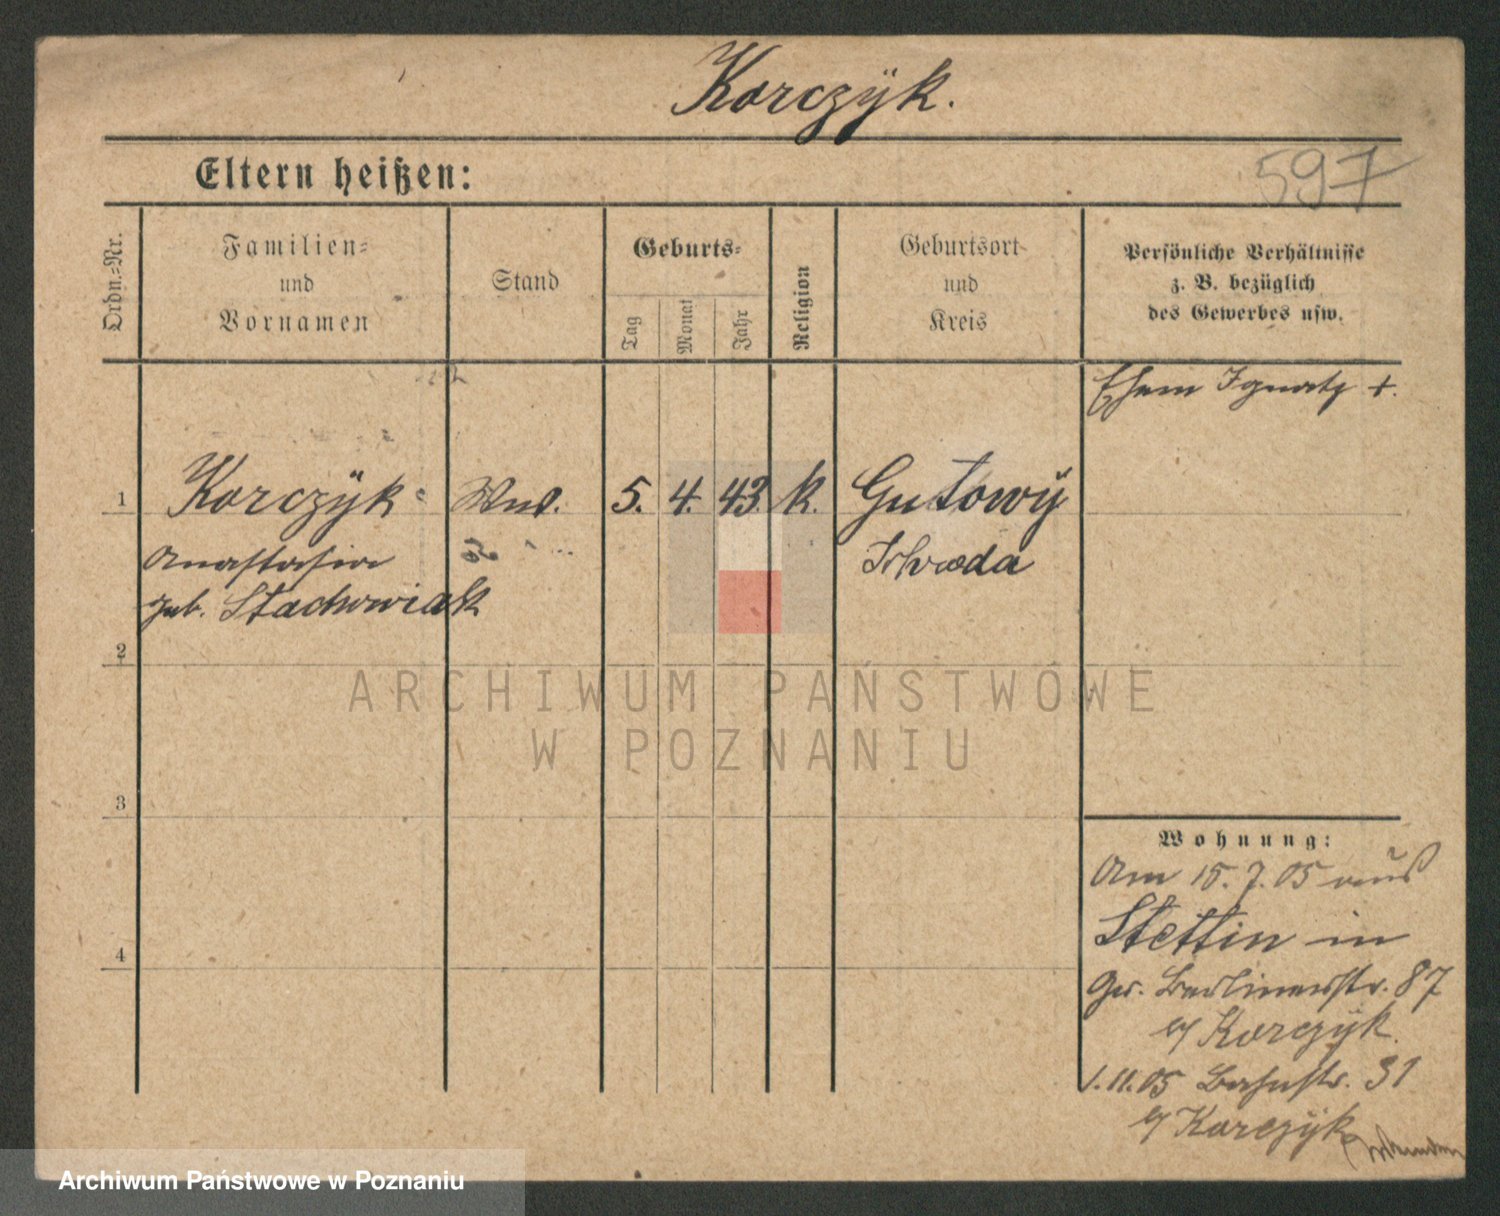 Korczÿk.
Eltern heißen:
597
Ordn.-Nr.
Familien-
und
Vornamen
Stand
Geburts-
Tag
Monat
Jahr
Religion
Geburtsort
und
Kreis
Persönliche Verhältnisse
z. B. bezüglich
des Gewerbes usw.
Ehem Ignatz +.
1 Korczÿk Wwe. 5. 4. 43. k. Gutowÿ
Anastasia Schroda
geb. Stachowiak
2
ARCHIWUM PAŃSTWOWE
W POZNANIU
3
Wohnung:
Am 15. 7. 05 aus
Stettin in
4
Gr. Berlinerstr. 87
b/ Korczÿk.
1.11.05 Bahnstr. 31
b/ Korczÿk
Archiwum Państwowe w Poznaniu